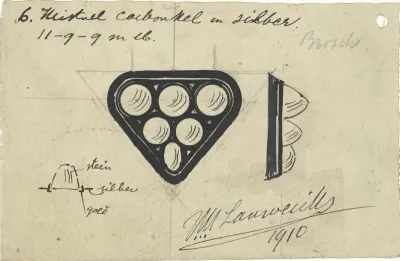 6. Kristal carbonkel in zilver.
11-9-9 m M.
Brosch
stein
zilber
gold
JLM Lauweriks
1910